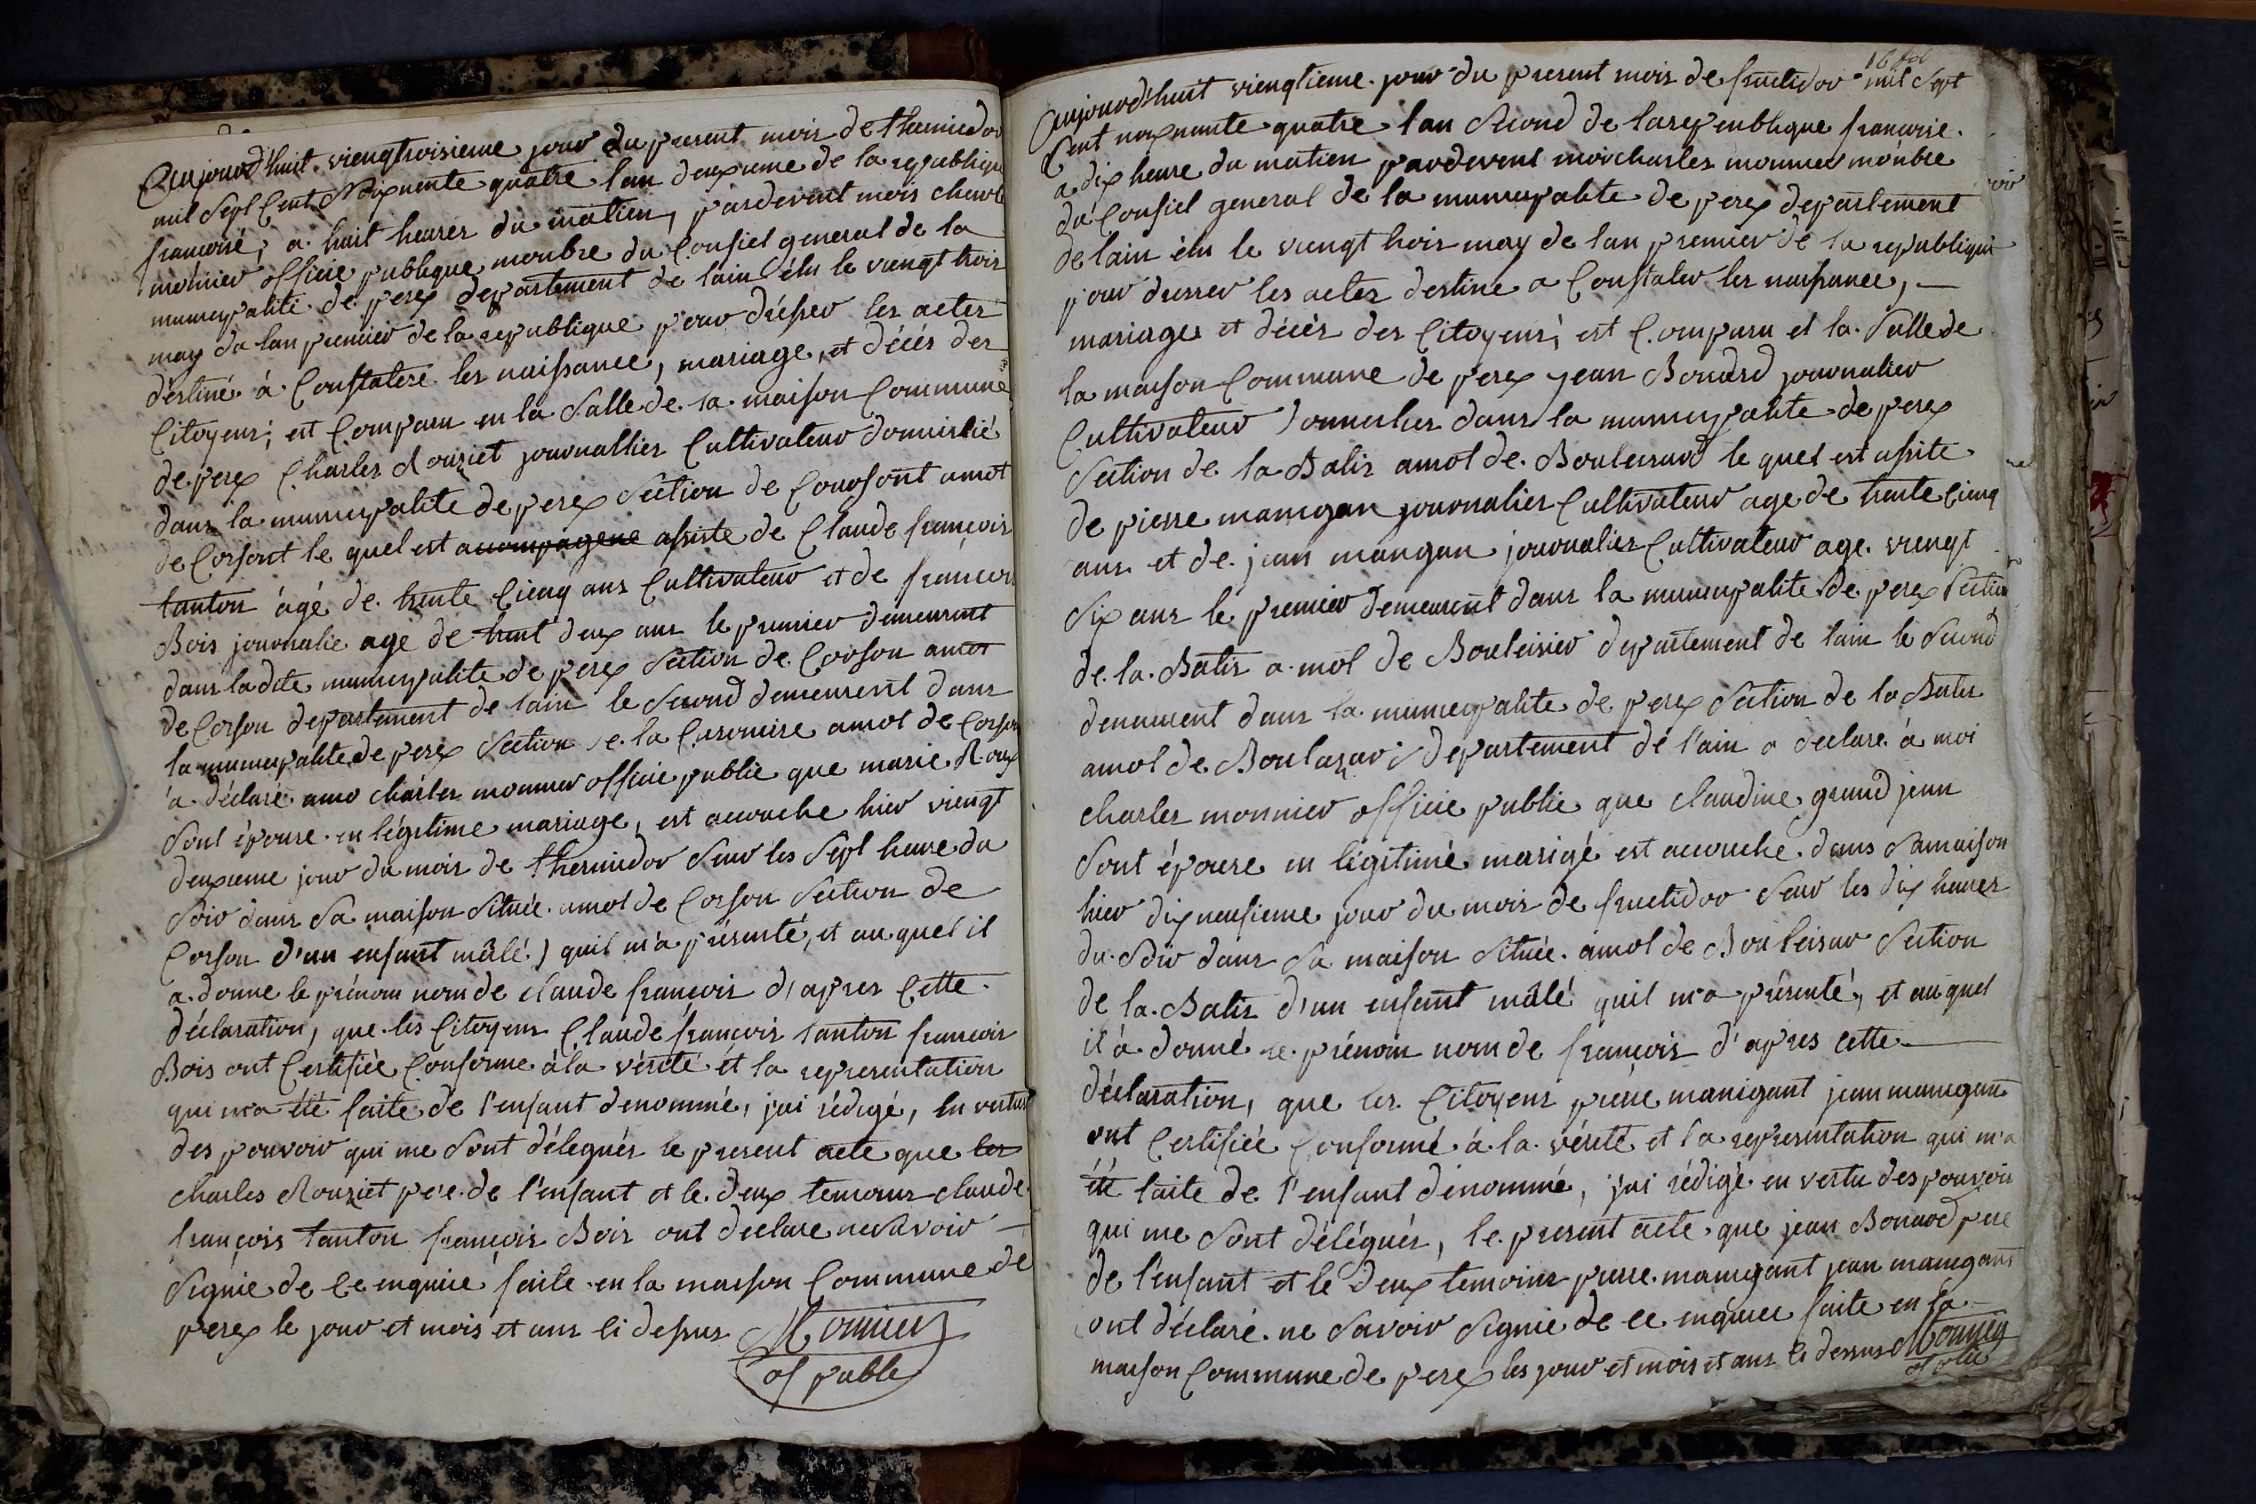 Aujourd'huit viengtroisieme jour du present mois de thermidor
mil sept cent Noixnente quatre l'an deuxieme de la republique
francoise, a huit heures du matien, pardevent mois charle
monnier officie publique monbre du Consiel general de la
municypalité de perex departement de l'ain élu le viengt trois
may da lan premier de la republique pour drésser les actes
déstiné à Constatere les naissance, mariage, et décés des
Citoyens; est Comparu en la Salle de la maison Commune
de perex Charles Rouziet jouvnallier Cultivateur domicilié
dans la municypalite de perex Séction de Corsont amot
de Corsont le quel est acompagene assiste de Claude francois
tanton âgé de trente Cienq ans Cultivateur et de francois
Bois jouvnalie age de trent deux ans le premier demeurent
dans ladite municypalite de perex Séction de Corson amot
de Corson departement de l'ain le Second demeurent dans
la municypalite de perex Séction de la amot de Corson
a déclaré amo charles monnier officie public que marie Roux
Sont épouse en légitime mariage, est accouche hier viengt
deuxieme jour du mois de thermidor Sur les Sept heure du
Soir dans Sa maison Située amot de Corson Séction de
Corson d'un enfant mâlé) quil m'a présenté, et au quel il
a donne le prénom nom de claude francois d'apres Cette
déclaration, que les Citoyens Claude francois tanton francois
Bois ont Certifiée Conforme à la vérité et la representation
qui m'a été faite de l'enfant denommé, jai rédigé, En vertus
des pouvoir qui me Sont délegués le present acte que les
charles Rouziet pere de l'enfant et le deux temoins claude
françois tanton francois Bois ont declare ne savoir
Signie de ce enquie faite en la maison Commune de
perex le jour et mois et ans Ci dessus Monnier
of public
Aujourd'huit viengtieme jour du present mois de fructidor mil Sept
Cent noixnante quatre l'an Second de la republique francoise
a dix heure du matien pardevent moi charles monnier monbre
du Consiel general de la municypalite de perex departement
de l'ain élu le viengt trois may de lan premier de la republique
pour dresser les actes destine a Constater les naissance,
mariage et décés des Citoyens; est Comparu et la Salle de
la maison Commune de perex jean Bonard jouvnalier
Cultivateur Domicilies dans la municypalite de perex
Séction de la Batis amot de Bouleisard le quel est assite
de pierre manigan jouvnalier Cultivateur age de trente Cienq
ans et de jean mangan jouvnalier Cultivateur age viengt
Six ans le premier demeurent dans la municypalite de perex Séction
de la Batis a mot de Bouleisier departement de l'ain le Second
demeurent dans la municypalite de perex Séction de la Batis
amot de Boulazar departement de l'ain a declare à moi
charles monnier officie public que claudine grand jean
Sont épouse en légitimé marigé est accouche dans Sa maison
hier dix neufieme jour du mois de fructidor Sur les dix heures
du Soir dans Sa maison Située amot de Bouleisar Séction
de la Batis d'un enfant mâlé quil m'a présenté, et au quel
il à donné le prénom nom de françois d'apres cette
déclaration, que les Citoyens pierre manigant jean manigan
ont Certifiée Conformé à la vérité et la representation qui m'a
été faite de l'enfant dénommé, j'ai rédigé en vertu des pouvoir
qui me Sont délégués, le present acte que jean Bonard pere
de l'enfant et le deux temoins pierre manigant jean manigant
ont déclaré ne Savoir Signie de ce enquiee faite en la
maison Commune de perex les jour et mois et ans Ci dessus Monnier
of plic